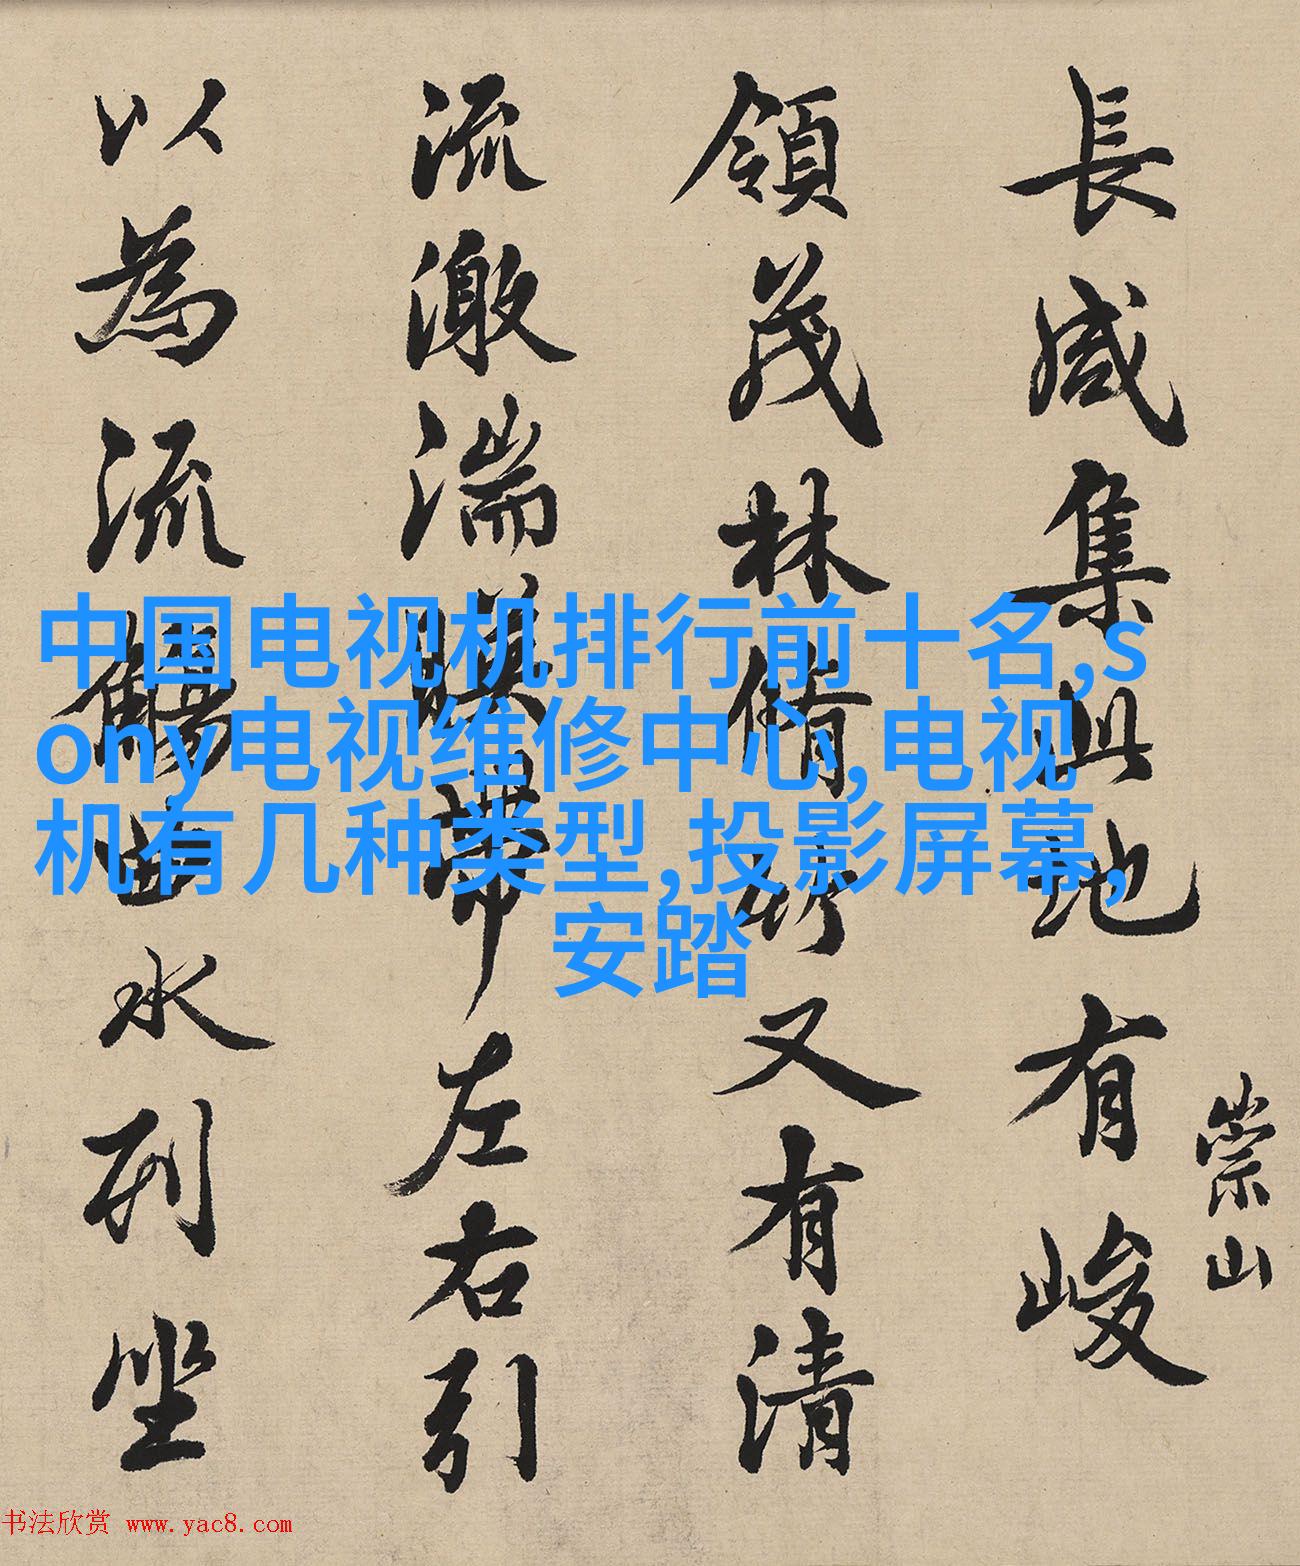 長咸集此地有峻
崇山
領茂林脩竹又有清
流激湍暎帶左右引
以為流觴曲水列坐
中国电视机排行前十名,s
ony电视维修中心,电视
机有几种类型,投影屏幕,
安踏
书法欣赏 www.yac8.com